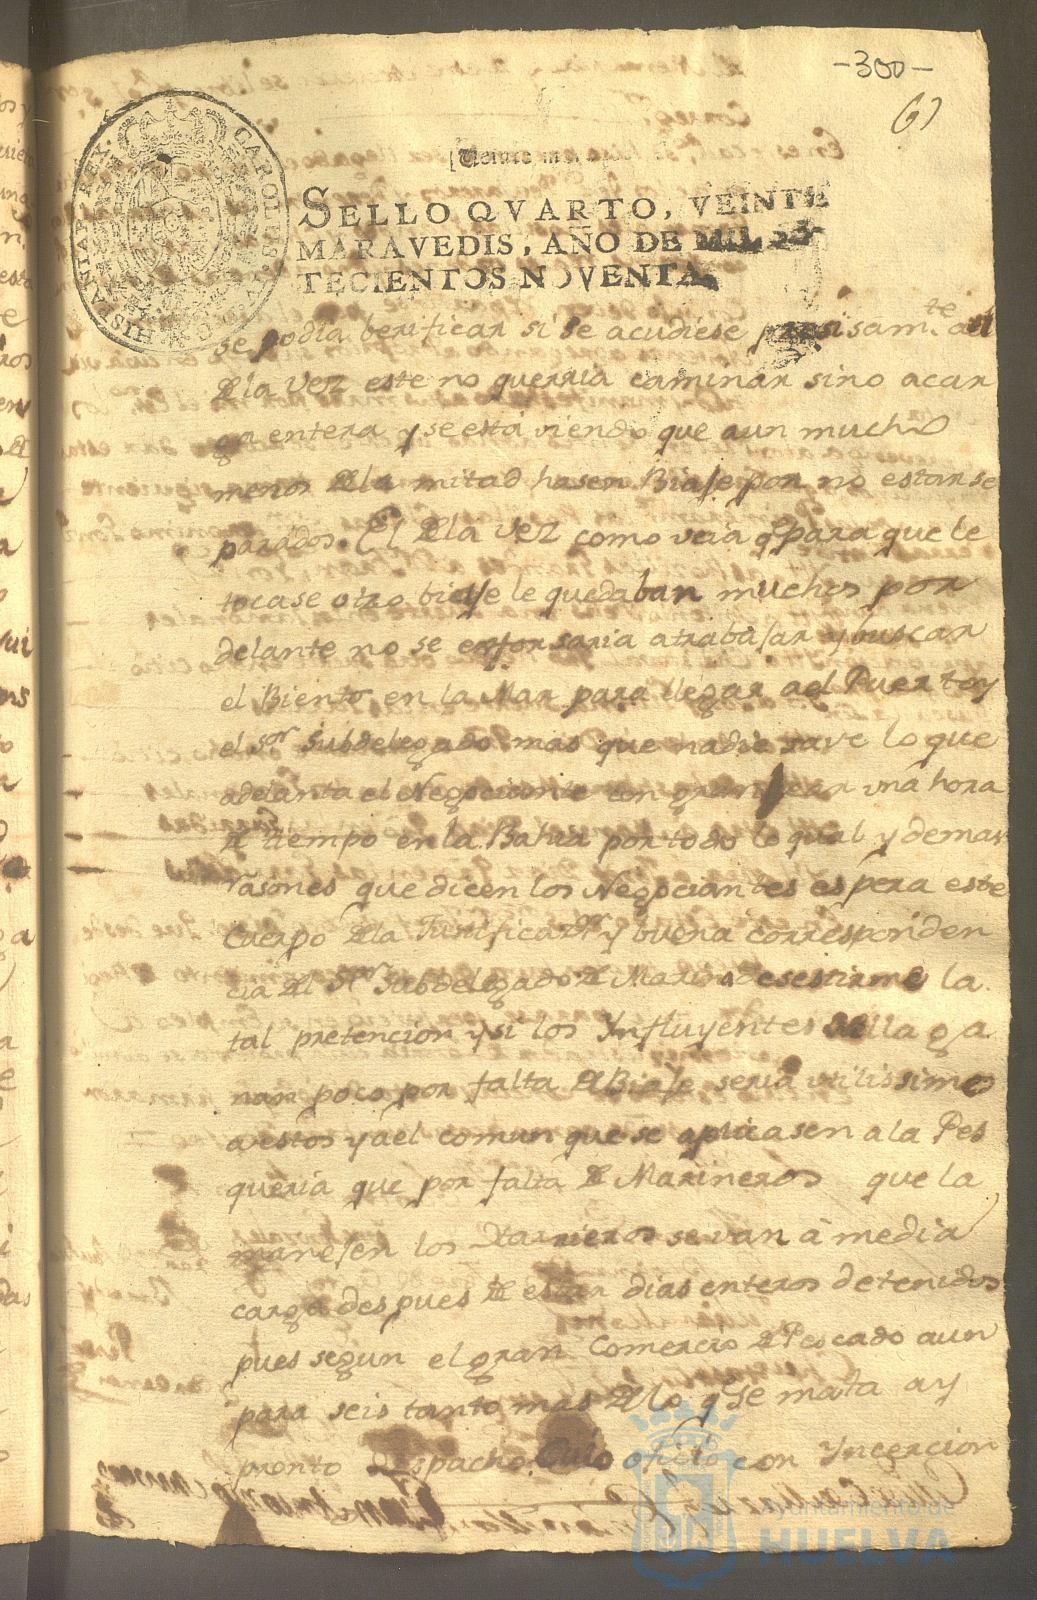 -300-
61
CAROLUS
HISPANIAR. REX.
SELLO QVARTO, VEINTE
MARAVEDIS, AÑO DE MIL
TECIENTOS NOVENTA
se podia berificar si se acudiese presisamte al
Dela Vez este no querria caminar sino acar
ga entera y se está viendo que aun mucho
menos Dela mitad hasen Biaje por no estarse
parados. El Dela Vez como veia q para que le
tocase otro bieje le quedaban muchos por
delante no se esforsaria atrabajar y buscar
el Biento en la Mar para llegar ael Puerto y
el sor Subdelegado mas que nadie save lo que
adelanta el Negociante con una hora
De tiempo en la Bahia por todo lo qual y demas
rasones que dicen los Negociantes espera este
Cuerpo Dela Justificaon y buena corresponden
cia del Sor Subdelegado De Marina desestime la
tal pretencion y si los Ynfluyentes ga
nan poco por falta De Biaje seria utilissimo
aestos y ael comun que se aplicasen ala Pes
queria que por falta De Marineros que la
manejen los Harrieros se van à media
carga despues De estar dias enteros detenidos
pues segun el gran Comercio De Pescado aun
para seis tanto mas Delo q Se mata ay
pronto Despacho. Cuio oficio con Yncercion
Ayuntamiento de
HUELVA